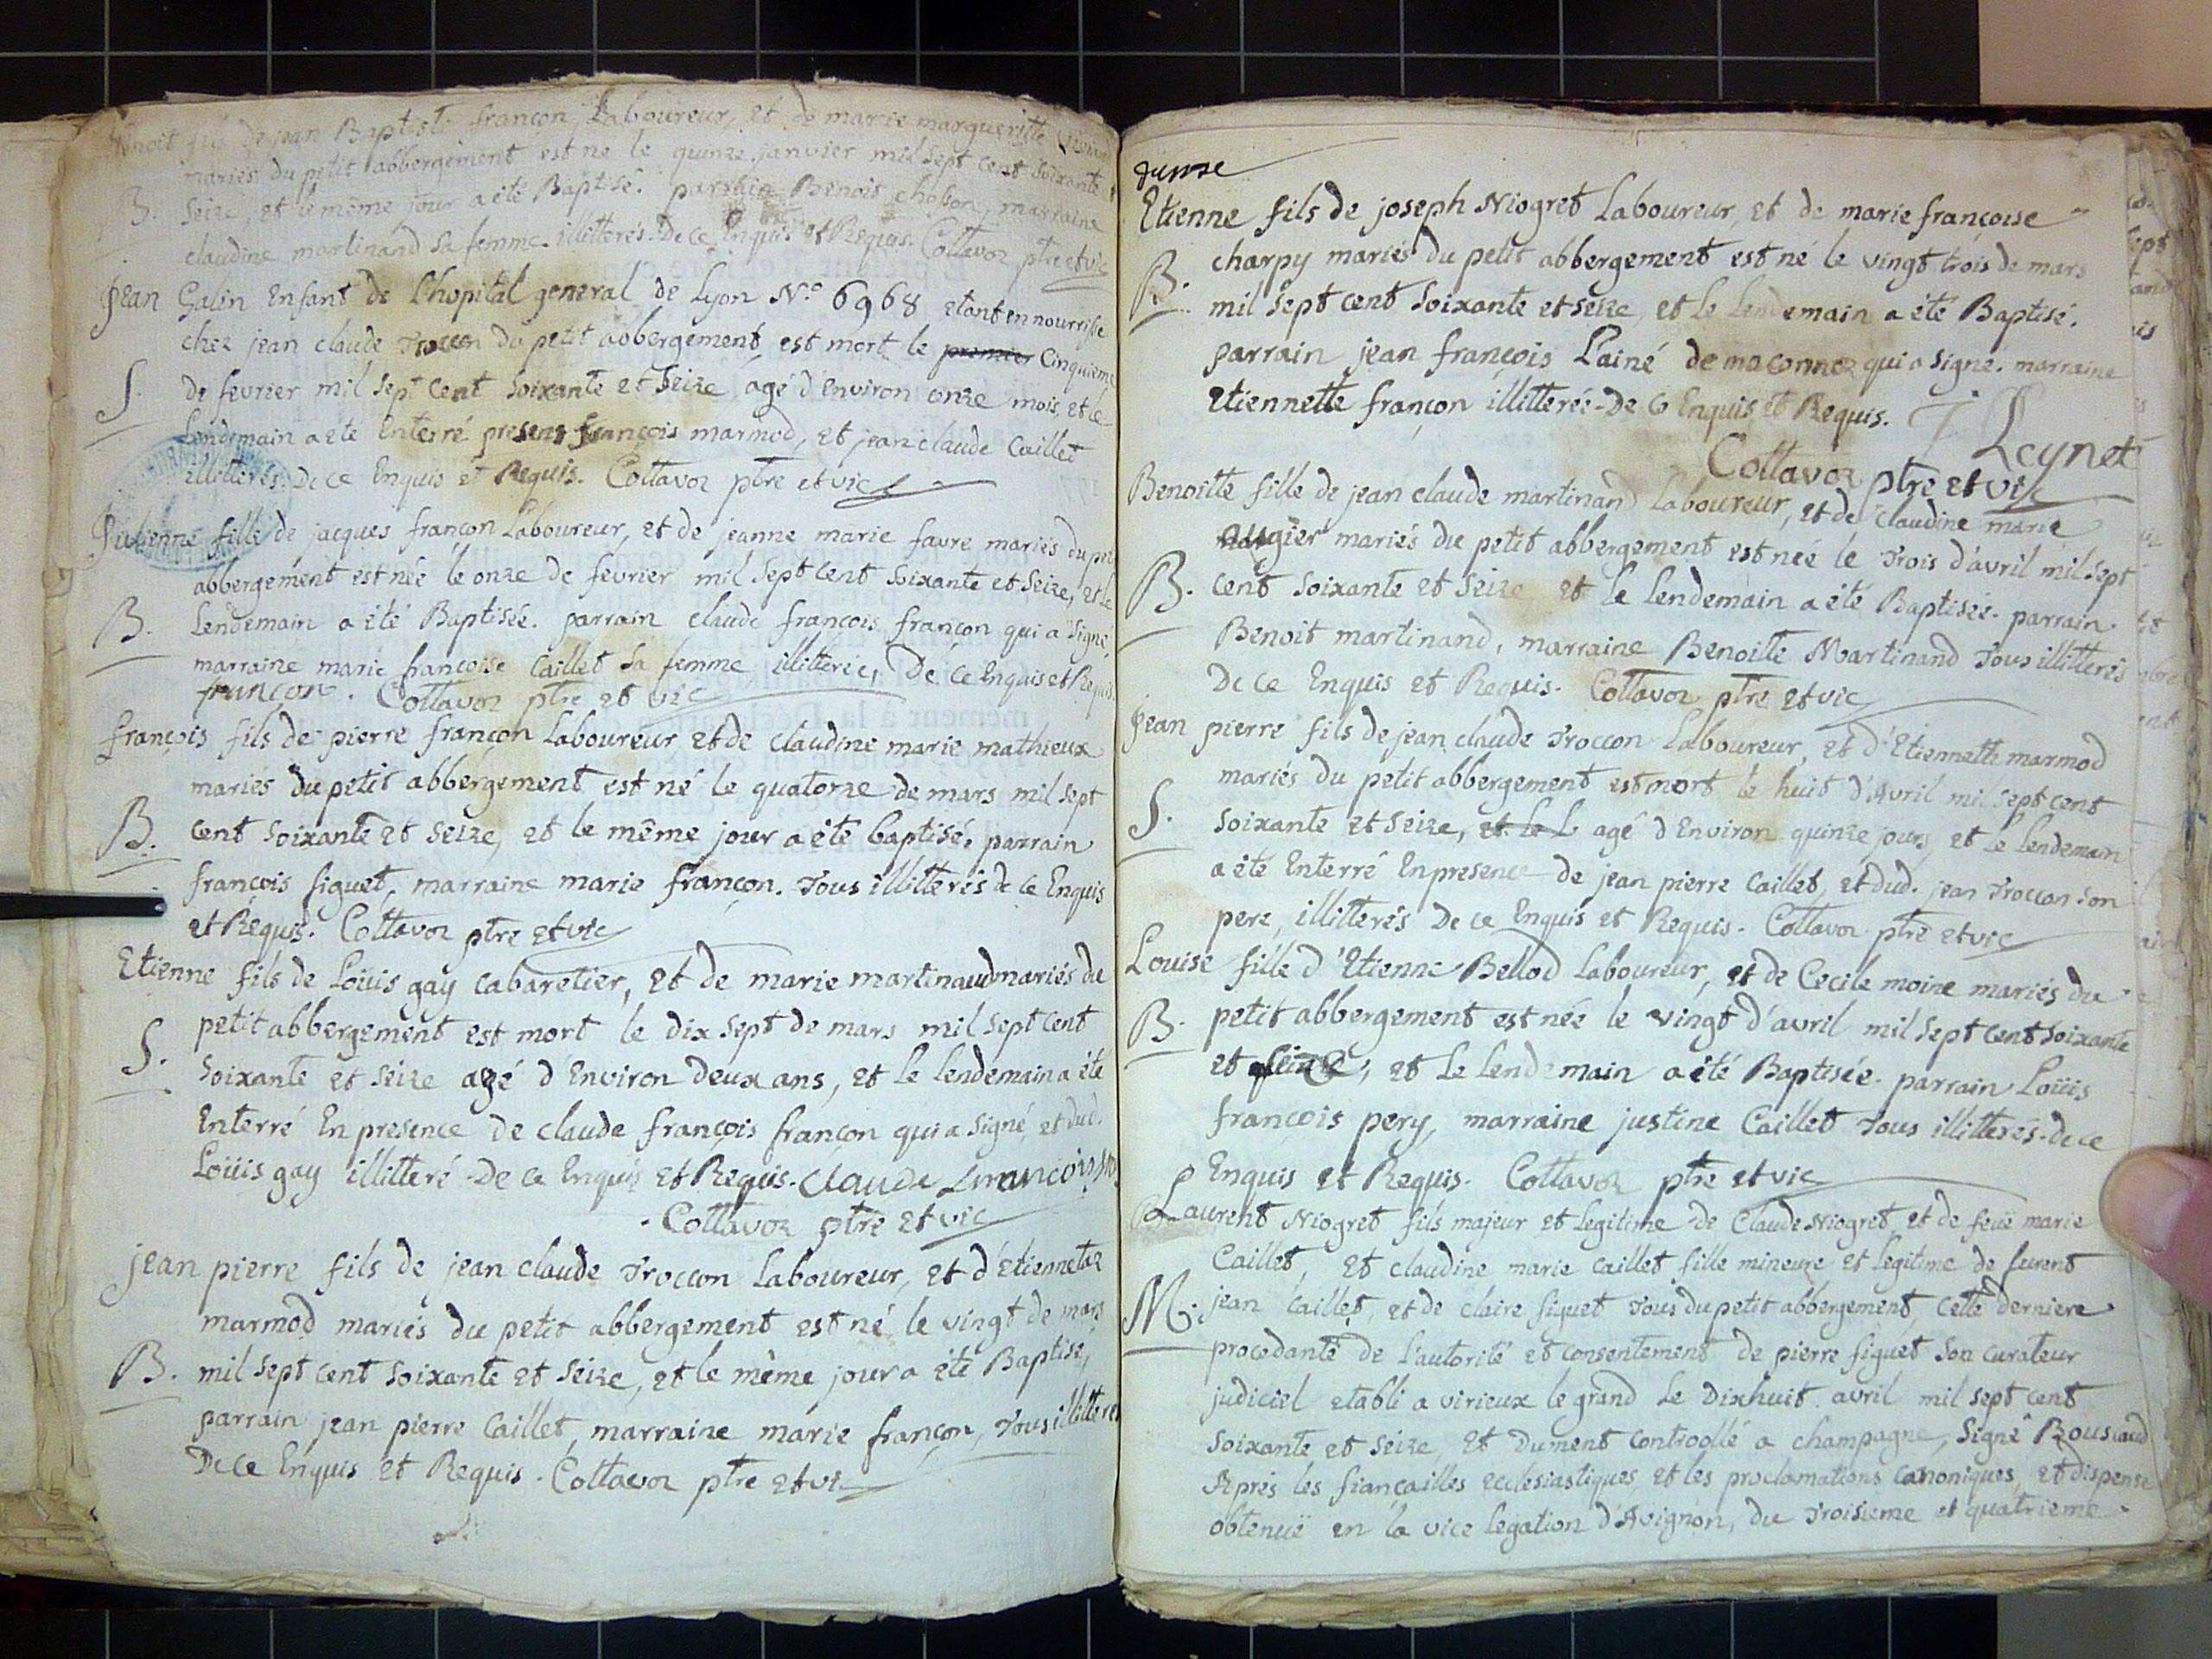 Benoit fils de jean Baptiste françon Laboureur, et de marie margueritte
mariés du petit abbergement est ne le quinze janvier mil sept cent soixante et
B. seize, et le même jour a été Baptisé. parrain Benois cholson, marraine
claudine martinand sa femme. illitterés. De ce Enquis et Requis. Collavoz ptre et vic
Jean Galin Enfant de L'hopital general de Lyon N.o 6968 etant en nourrisse
chez jean claude Troccon du petit abbergement, est mort le premier Cinquieme
S. de fevrier mil sept cent soixante et seize, agé d'Environ onze mois, et le
Lendemain a ete Enterré presens françois marmod, et jean claude Caillet
illitterés. De ce Enquis et Requis. Collavoz ptre et vic
Julienne fille de jacques françon Laboureur, et de jeanne marie favre mariés du petit
abbergement est née le onze de fevrier mil sept cent soixante et seize, et le
B. Lendemain a été Baptisée. parrain claude françois françon qui a signé,
marraine marie françoise Caillet sa femme, illitterée, De ce Enquis et Requis.
françon. Collavoz ptre et vic
françois fils de pierre françon Laboureur et de claudine marie mathieux
mariés du petit abbergement est né le quatorze de mars mil sept
B. cent soixante et seize, et le même jour a été baptisé, parrain
françois figuet, marraine marie françon. Tous illitterés de ce Enquis
et Requis. Collavoz ptre et vic
Etienne fils de Loüis gay cabaretier, et de marie martinaud mariés du
petit abbergement est mort le dix sept de mars mil sept cent
S. soixante et seize agé d'Environ deux ans, et le lendemain a été
Enterré En presence de claude françois françon qui a signé, et dud.
Loüis gay illitteré. De ce Enquis et Requis. Claude
Collavoz ptre et vic
jean pierre fils de jean claude Troccon Laboureur, et d'Etiennette
marmod mariés du petit abbergement est né le vingt de mars
B. mil sept cent soixante et seize, et le même jour a été Baptisé,
parrain jean pierre Caillet, marraine marie françon, Tous illitterés
De ce Enquis et Requis. Collavoz ptre et vic
Etienne fils de joseph Niogret Laboureur, et de marie françoise
charpy mariés du petit abbergement est né le vingt trois de mars
B. mil sept cent soixante et seize, et le lendemain a été Baptisé.
parrain jean françois Lainé de maconnoz qui a signé. marraine
Etiennette françon illitterée. De ce Enquis et Requis. J Leynet
Collavoz ptre et vic
Benoitte fille de jean claude martinand Laboureur, et de claudine marie
augier mariés du petit abbergement est née le Trois d'avril mil sept
B. cent soixante et seize et le lendemain a été Baptisée. parrain
Benoit martinand, marraine Benoitte Martinand Tous illitterés
De ce Enquis et Requis. Collavoz ptre et vic
jean pierre fils de jean claude Troccon Laboureur, et d'Etiennette marmod
mariés du petit abbergement est mort le huit d'Avril mil sept cent
S. soixante et seize, et le L agé d'Environ quinze jours, et le lendemain
a été Enterré En presence de jean pierre Caillet, et dud. jean Troccon son
pere, illitterés De ce Enquis et Requis. Collavoz ptre et vic
Louise fille d'Etienne Bellod Laboureur, et de Cecile moine mariés du
B. petit abbergement est née le vingt d'avril mil sept cent soixante
et seize, et le lendemain a été Baptisée. parrain Loüis
françois pery, marraine justine Caillet Tous illitterés. de ce
Enquis et Requis. Collavoz ptre et vic
Laurent Niogret fils majeur et legitime de Claude Niogret, et de feuë marie
Caillet, et claudine marie caillet fille mineure et legitime de furent
M. jean Caillet, et de claire figuet Tous du petit abbergement, cette derniere
procedante de l'autorité et consentement de pierre figuet son curateur
judiciel etabli a virieux le grand Le Dixhuit avril mil sept cent
soixante et seize, et dument controollé a champagne, signé
Aprés les fiançailles ecclesiastiques, et les proclamations canoniques, et dispense
obtenuë en la vice legation d'Avignon, du Troisieme et quatrieme